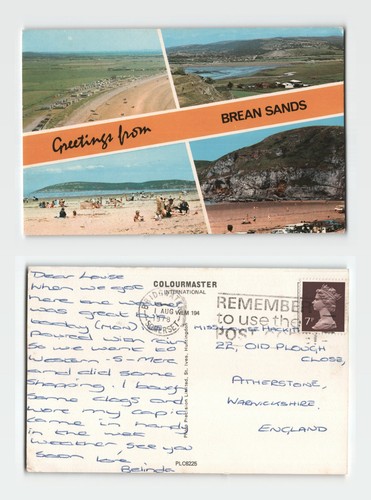 Greetings from
BREAN SANDS
Dear Louise
When we got
here the weather
was great but
today (Mon) it
poured with rain
So we went to
Weston-S-Mare
and did some
shopping. I bought
some clogs and
wore my cagio
came in handy
in the wet
weather see you
soon love
Belinda
COLOURMASTER
INTERNATIONAL
WLM 194
Photo Precision Limited, St. Ives, Huntingdon
PLC8226
BRIDGWATER
1 AUG
SOMERSET
REMEMBER
to use the
POST
7P
MISS
22, OLD PLOUGH
CLOSE,
ATHERSTONE,
WARWICKSHIRE.
ENGLAND